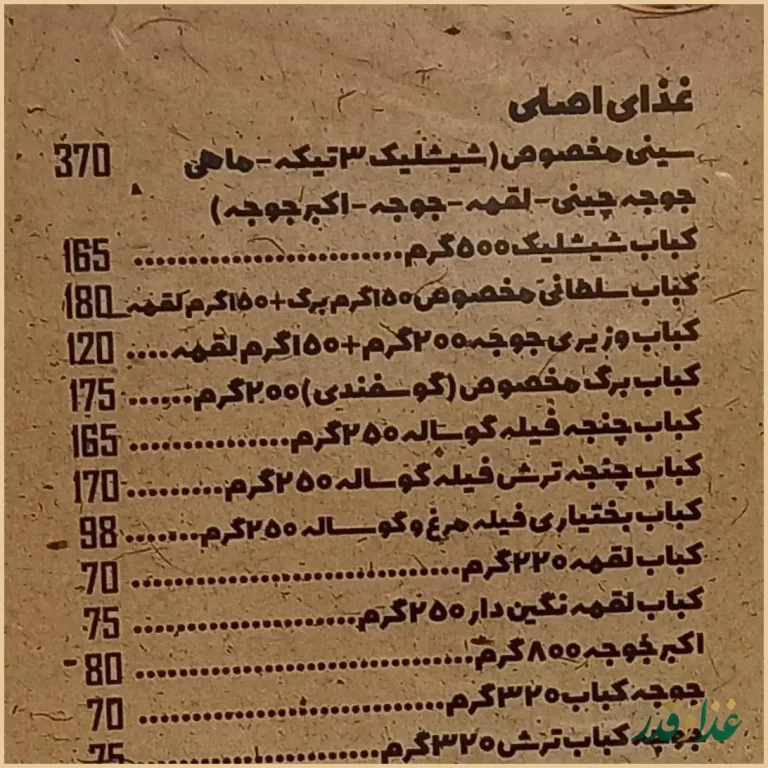 غذای اصلی
سینی مخصوص (شیشلیک ۳ تیکه - ماهی 370
جوجه چینی - لقمه - جوجه - اکبر جوجه)
کباب شیشلیک ۵۰۰ گرم........................ 165
کباب سلطانی مخصوص ۱۵۰ گرم برگ + ۱۵۰ گرم لقمه 180
کباب وزیری جوجه ۲۰۰ گرم + ۱۵۰ گرم لقمه.... 120
کباب برگ مخصوص (گوسفندی) ۲۰۰ گرم...... 175
کباب چنجه فیله گوساله ۲۵۰ گرم.............. 165
کباب چنجه ترش فیله گوساله ۲۵۰ گرم......... 170
کباب بختیاری فیله مرغ و گوساله ۲۵۰ گرم....... 98
کباب لقمه ۲۲۰ گرم............................ 70
کباب لقمه نگین دار ۲۵۰ گرم................... 75
اکبر جوجه ۸۰۰ گرم............................ 80
جوجه کباب ۳۲۰ گرم.......................... 70
جوجه کباب ترش ۳۲۰ گرم.................... 75
غذا قدر